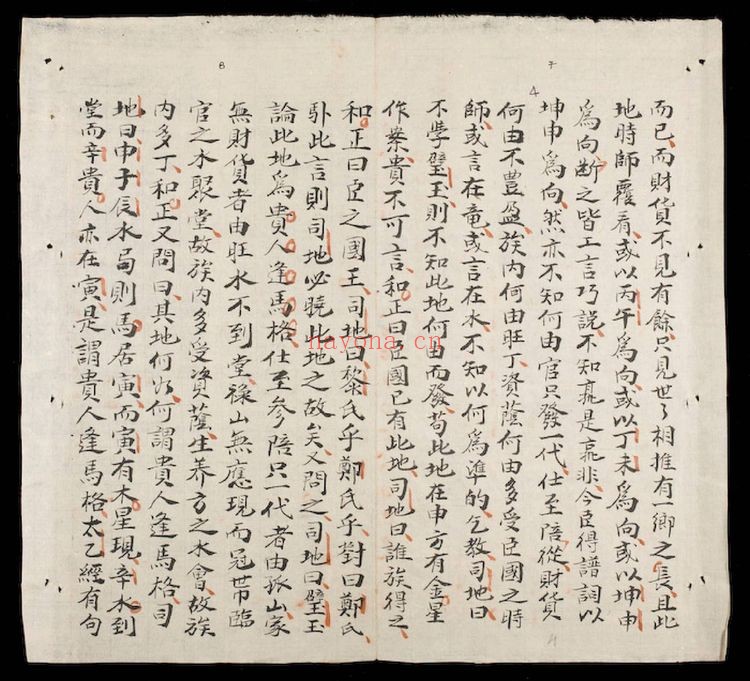 而已而財貨不見有餘只見世〻相推有一鄉之長且此
地時師覆看或以丙午爲向或以丁未爲向或以坤申
爲向断之皆工言巧説不知孰是孰非今臣得譜詞以
坤申爲向然亦不知何由官只發一代仕至陪從財貨
何由不豊盈族内何由旺丁資蔭何由多受臣國之時
師或言在竜或言在水不知以何爲準的乞教司地曰
不學璧玉則不知此地何由而發苟此地在申方有金星
作案貴不可言和正曰臣國已有此地司地曰誰族得之
和正曰臣之國王司地曰黎氏乎鄭氏乎對曰鄭氏
卧此言則司地必曉此地之故矣又問之司地曰璧玉
論此地爲貴人逢馬格仕至參陪只一代者由孤山家
無財貨者由旺水不到堂祿山無應現而冠帶臨
官之水聚堂故族内多受資蔭生養方之水會故族
内多丁和正又問曰其地何以何謂貴人逢馬格司
地曰申子辰水局則馬居寅而寅有木星現辛水到
堂而辛貴人亦在寅是謂貴人逢馬格太乙經有句
8
4
nayona.cn